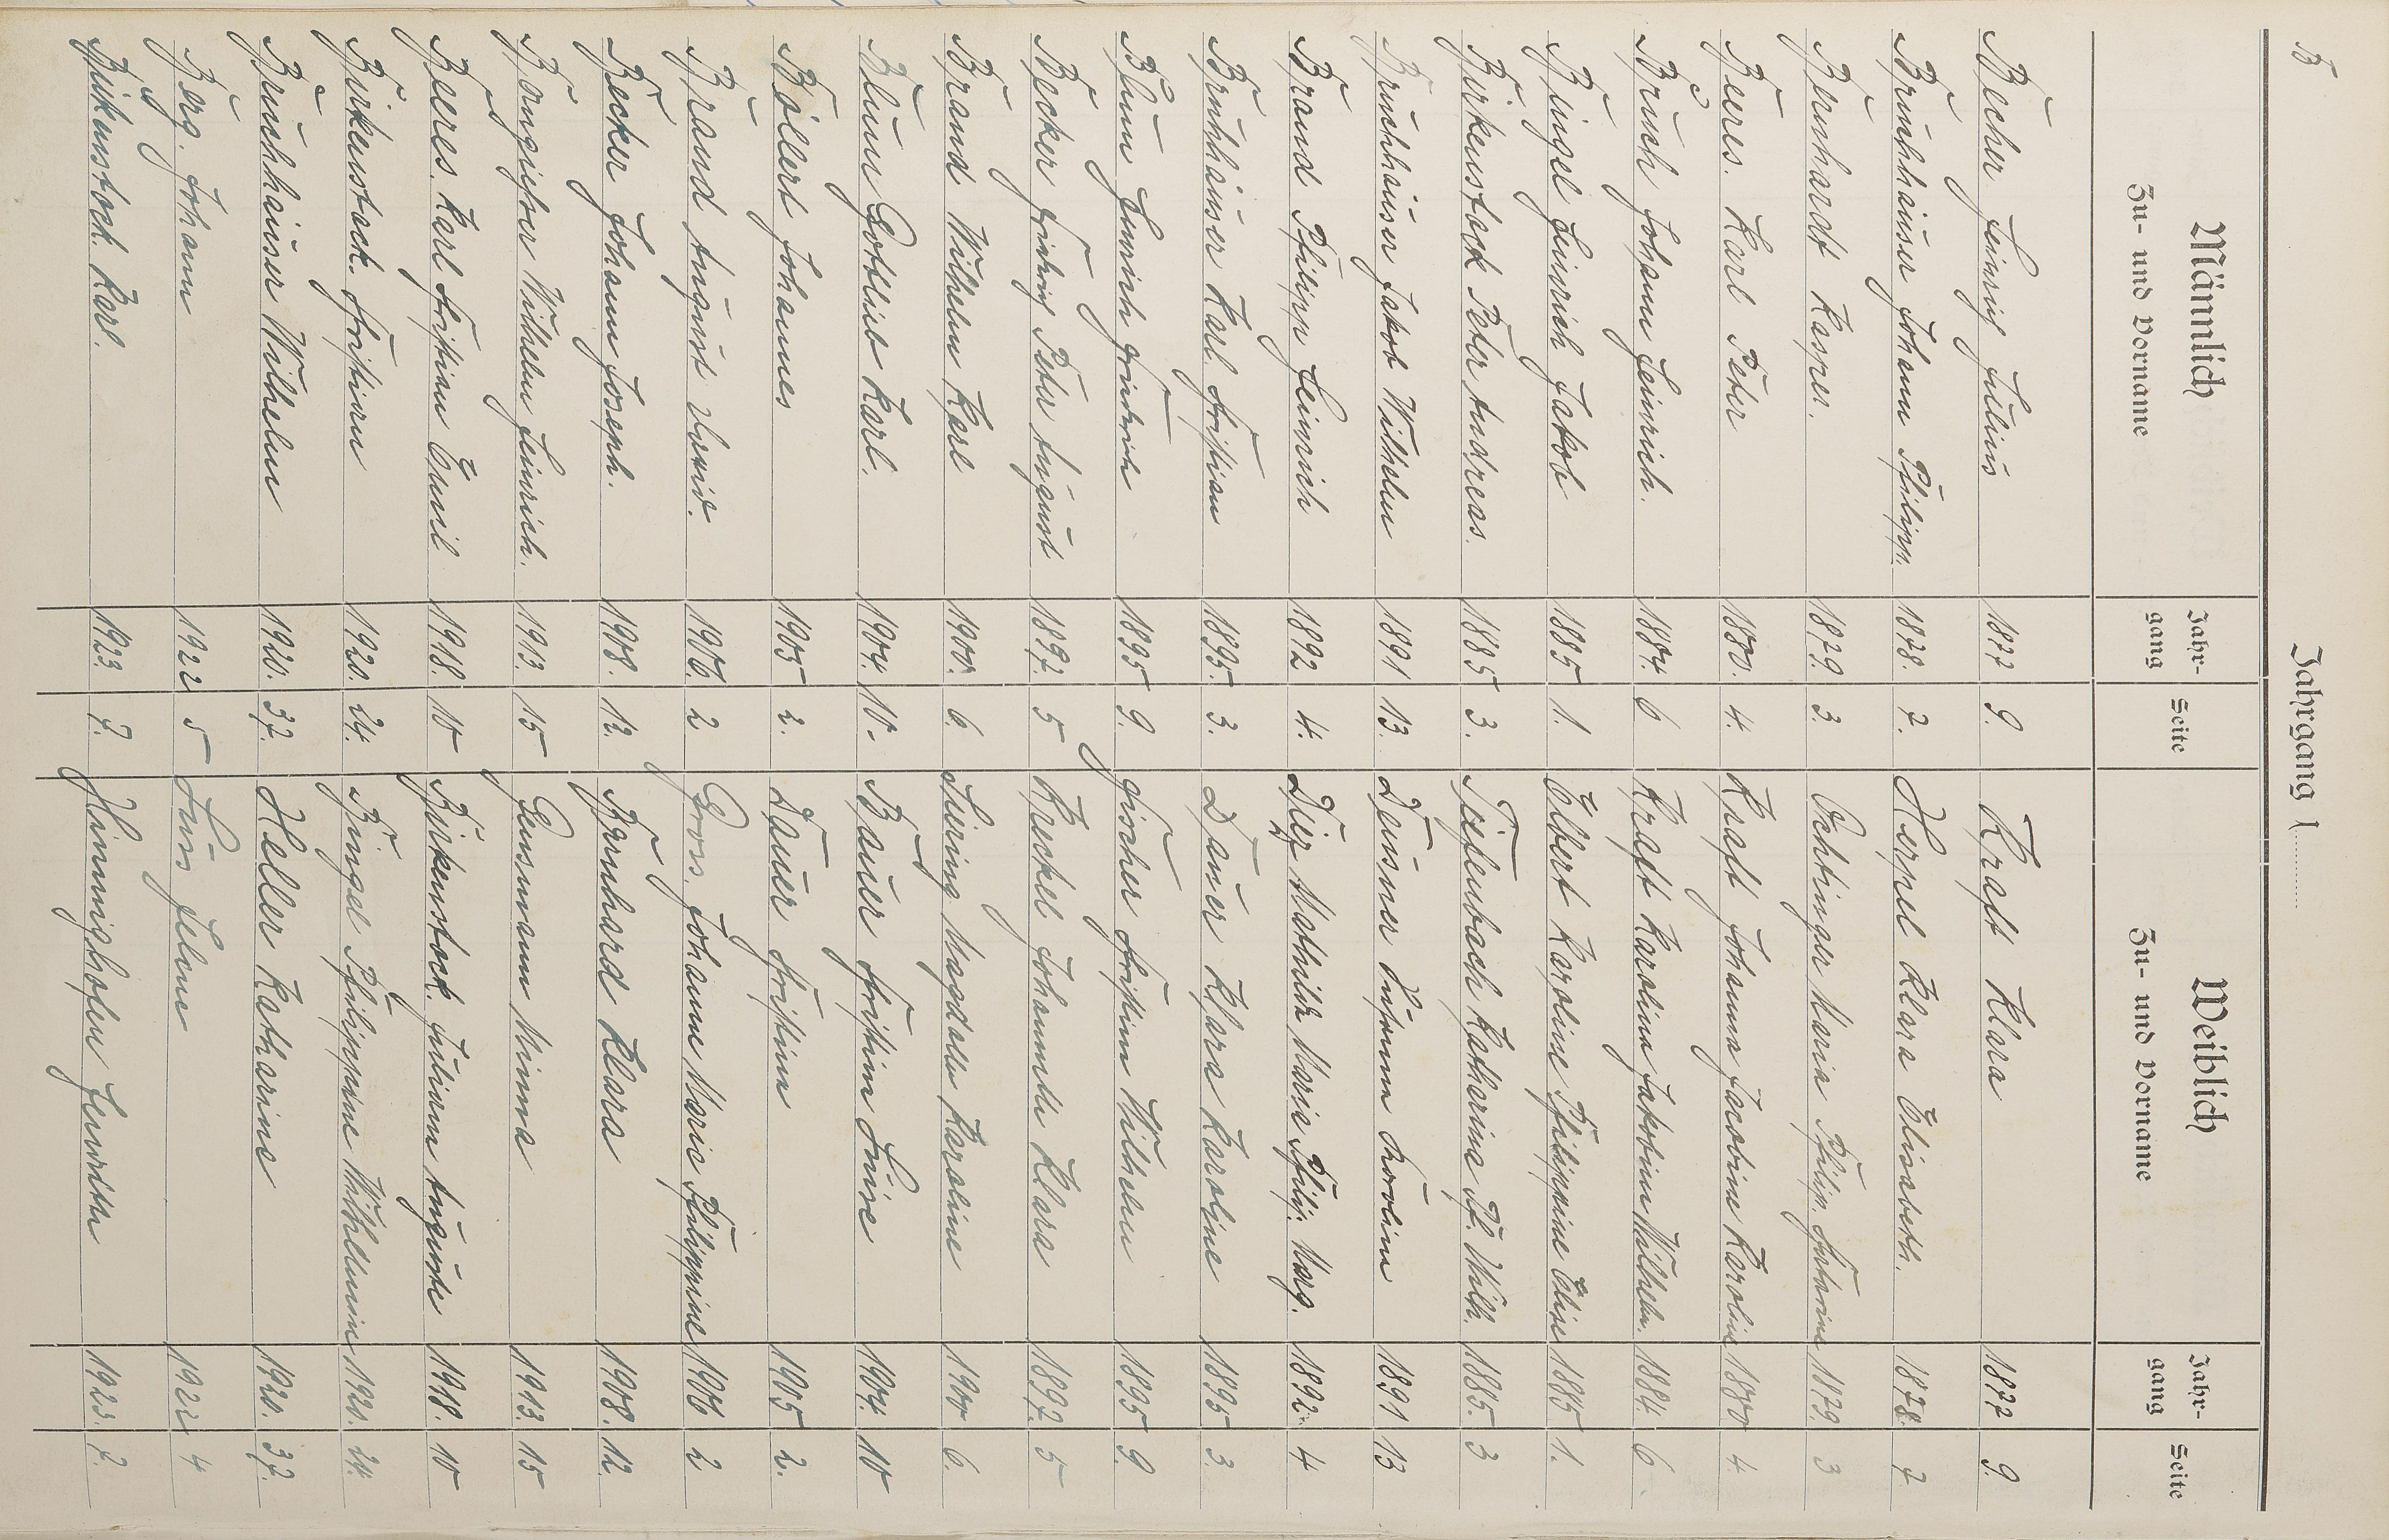 B
Jahrgang 1
Männlich Weiblich
Zu- und Vorname Jahr- gang Seite Zu- und Vorname Jahr- gang Seite
Becher Heinrich Julius 1877 9. Kraft Klara 1877 9.
Bruchhäuser Johann Philipp. 1878. 7. Herpel Klara Elisabeth. 1878. 7.
Bernhardt Kasper. 1879. 3. Öchtinger Maria Philip. Katharine 1879. 3
Beeres. Karl Peter 1880. 4. Kraft Johanna Jacobine Karoline 1880 4.
Bruch Johann Heinrich. 1884. 6 Kraft Karolina Jakobine Wilhelm. 1884. 6
Bingel Heinrich Jakob 1885 1. Elbert Karoline Philippine Elise 1885 1.
Birkenstock Peter Andreas. 1885 3. Tiefenbach Katharina Ph. Wilh. 1885. 3
Bruchhäuser Jakob Wilhelm 1891 13. Deusner Susanna Karoline 1891 13
Brand Philipp Heinrich 1892 4. Diez Mathilde Marie Philip. Marg. 1892. 4
Bruchhäuser Karl Christian 1895. 3. Dauer Klara Karoline 1895 3.
Blum Heinrich Friedrich 1895 9. Fischer Christine Wilhelm 1895 9.
Becker Friedrich Peter August 1897. 5 Kreckel Johannette Klara 1897. 5
Brand Wilhelm Karl 1900. 6. Magdalene Karoline 1900 6.
Blum Gottlieb Karl. 1904. 10. Bauer Christine Luise 1904. 10
Böllert Johannes 1905 2. Dauer Christine 1905 2.
Brand August 1906. 2 Gross. Johanne Marie Philippine 1906 2
Becker Johann Joseph. 1908. 12. Bernhard Klara 1908. 12.
Wilhelm Heinrich. 1913. 15 Gensmann Minna 1913. 15
Beeres. Karl Christian Emil 1918. 10 Birkenstock. Juliane Auguste 1918. 10
Birkenstock. Christian 1920. 24. Bingel Philippine Wilhelmine 1920. 24.
Bruchhäuser Wilhelm 1920. 37. Heller Katharine 1920. 37.
Berg. Johann 1922 5 Helene 1922 4
Birkenstock. Karl. 1923. 7. Himmighofen Henriette 1923. 7.